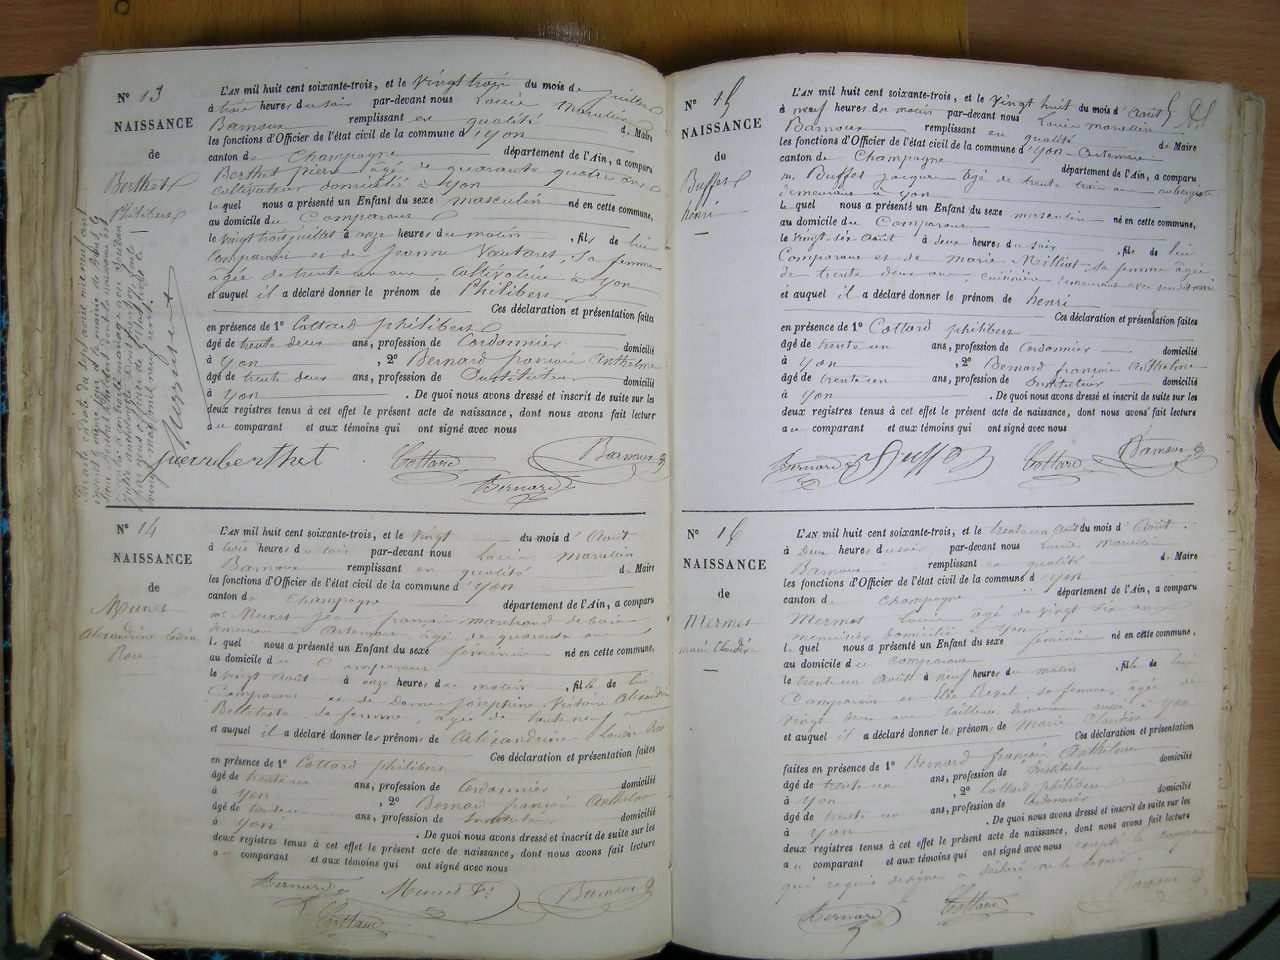 N° 13
NAISSANCE
de
Berthet
Philibert
L'AN mil huit cent soixante-trois, et le vingt trois du mois de juillet
à trois heures du soir par-devant nous Lucien Marcellin
Barnoux remplissant en qualité de Maire
les fonctions d'Officier de l'état civil de la commune d'yon
canton de Champagne département de l'Ain, a comparu
Berthet pierre âgé de quarante quatre ans
cultivateur domicilié à yon
lequel nous a présenté un Enfant du sexe masculin né en cette commune,
au domicile du Comparant
le vingt trois juillet à onze heures du matin, fils de lui
Comparant et de sa femme
âgée de trente un ans à yon
et auquel il a déclaré donner le prénom de Philibert
Ces déclaration et présentation faites
en présence de 1° Cottard philibert
âgé de trente deux ans, profession de Cordonnier domicilié
à yon, 2° Bernard françois Anthelme
âgé de trente deux ans, profession de Instituteur domicilié
à yon. De quoi nous avons dressé et inscrit de suite sur les
deux registres tenus à cet effet le présent acte de naissance, dont nous avons fait lecture
au comparant et aux témoins qui ont signé avec nous
pierre berthet Cottard Barnoux
Bernard
N° 14
NAISSANCE
de
Munet
Alexandrine Louise
Rose
L'AN mil huit cent soixante-trois, et le vingt du mois d'Août
à trois heures du soir par-devant nous Lucien Marcellin
Barnoux remplissant en qualité de Maire
les fonctions d'Officier de l'état civil de la commune d'yon
canton de Champagne département de l'Ain, a comparu
Mr Munet Jean françois marchand de bois
demeurant Artemare âgé de quarante ans
lequel nous a présenté un Enfant du sexe féminin né en cette commune,
au domicile du Comparant
le vingt Août à onze heures du matin, fille de lui
Comparant et de dame Joséphine Victoire
sa femme, âgée de trente neuf
et auquel il a déclaré donner les prénoms de Alexandrine Louise Rose
Ces déclaration et présentation faites
en présence de 1° Cottard philibert
âgé de trente un ans, profession de Cordonnier domicilié
à yon, 2° Bernard françois Anthelme
âgé de trente un ans, profession de Instituteur domicilié
à yon. De quoi nous avons dressé et inscrit de suite sur les
deux registres tenus à cet effet le présent acte de naissance, dont nous avons fait lecture
au comparant et aux témoins qui ont signé avec nous
Bernard Munet Barnoux
Cottard
N° 15
NAISSANCE
de
Buffet
henri
L'AN mil huit cent soixante-trois, et le vingt huit du mois d'Août
à neuf heures du matin par-devant nous Lucien marcellin
Barnoux remplissant en qualité de Maire
les fonctions d'Officier de l'état civil de la commune d'yon-artemare
canton de Champagne département de l'Ain, a comparu
m. Buffet jacques âgé de trente trois ans aubergiste
demeurant à yon
lequel nous a présenté un Enfant du sexe masculin né en cette commune,
au domicile du Comparant
le vingt six Août à deux heures du soir, fils de lui
Comparant et de marie Milliat sa femme âgée
de trente deux ans cuisinière demeurant avec son mari
et auquel il a déclaré donner le prénom de henri
Ces déclaration et présentation faites
en présence de 1° Cottard philibert
âgé de trente un ans, profession de Cordonnier domicilié
à yon, 2° Bernard françois Anthelme
âgé de trente un ans, profession de Instituteur domicilié
à yon. De quoi nous avons dressé et inscrit de suite sur les
deux registres tenus à cet effet le présent acte de naissance, dont nous avons fait lecture
au comparant et aux témoins qui ont signé avec nous
Bernard Buffet Cottard Barnoux
N° 16
NAISSANCE
de
Mermet
marie Claudine
L'AN mil huit cent soixante-trois, et le trente un août du mois d'Août
à Deux heures du soir par-devant nous Lucien Marcellin
Barnoux remplissant en qualité de Maire
les fonctions d'Officier de l'état civil de la commune d'yon
canton de Champagne département de l'Ain, a comparu
Mermet Louis âgé de vingt six ans
menuisier domicilié à yon
lequel nous a présenté un Enfant du sexe féminin né en cette commune,
au domicile du comparant
le trente un Août à neuf heures du matin, fille de lui
Comparant et sa femme, âgée de
vingt ans tailleuse demeurant aussi à yon
et auquel il a déclaré donner le prénom de Marie Claudine
Ces déclaration et présentation
faites en présence de 1° Bernard françois Anthelme
âgé de trente un ans, profession de Instituteur domicilié
à yon, 2° Cottard philibert
âgé de trente un ans, profession de Cordonnier domicilié
à yon. De quoi nous avons dressé et inscrit de suite sur les
deux registres tenus à cet effet le présent acte de naissance, dont nous avons fait lecture
au comparant et aux témoins qui ont signé avec nous excepté le comparant
qui requis de signer a déclaré ne le savoir.
Bernard Cottard Barnoux